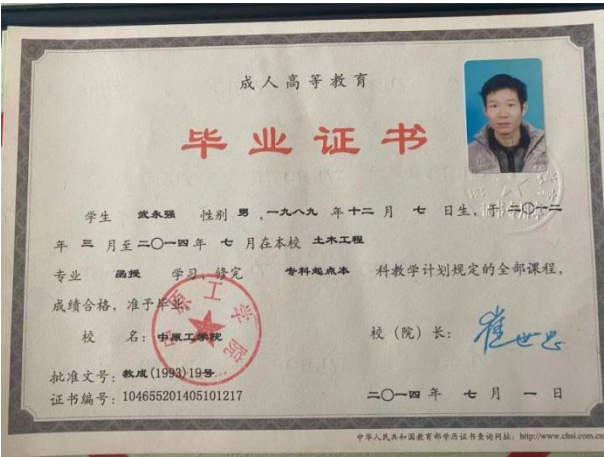 成人高等教育
毕业证书
学生 武永强 性别 男 ,一九八九 年 十二 月 七 日生,于 二〇一二
年 三 月至 二〇一四 年 七 月在本校 土木工程
专业 函授 学习,修完 专科起点本 科教学计划规定的全部课程,
成绩合格,准予毕业。
校 名: 中原工学院
校(院)长: 崔世忠
批准文号: 教成(1993)19号
证书编号: 104655201405101217
二〇一四 年 七 月 一 日
中华人民共和国教育部学历证书查询网址: http://www.chsi.com.cn